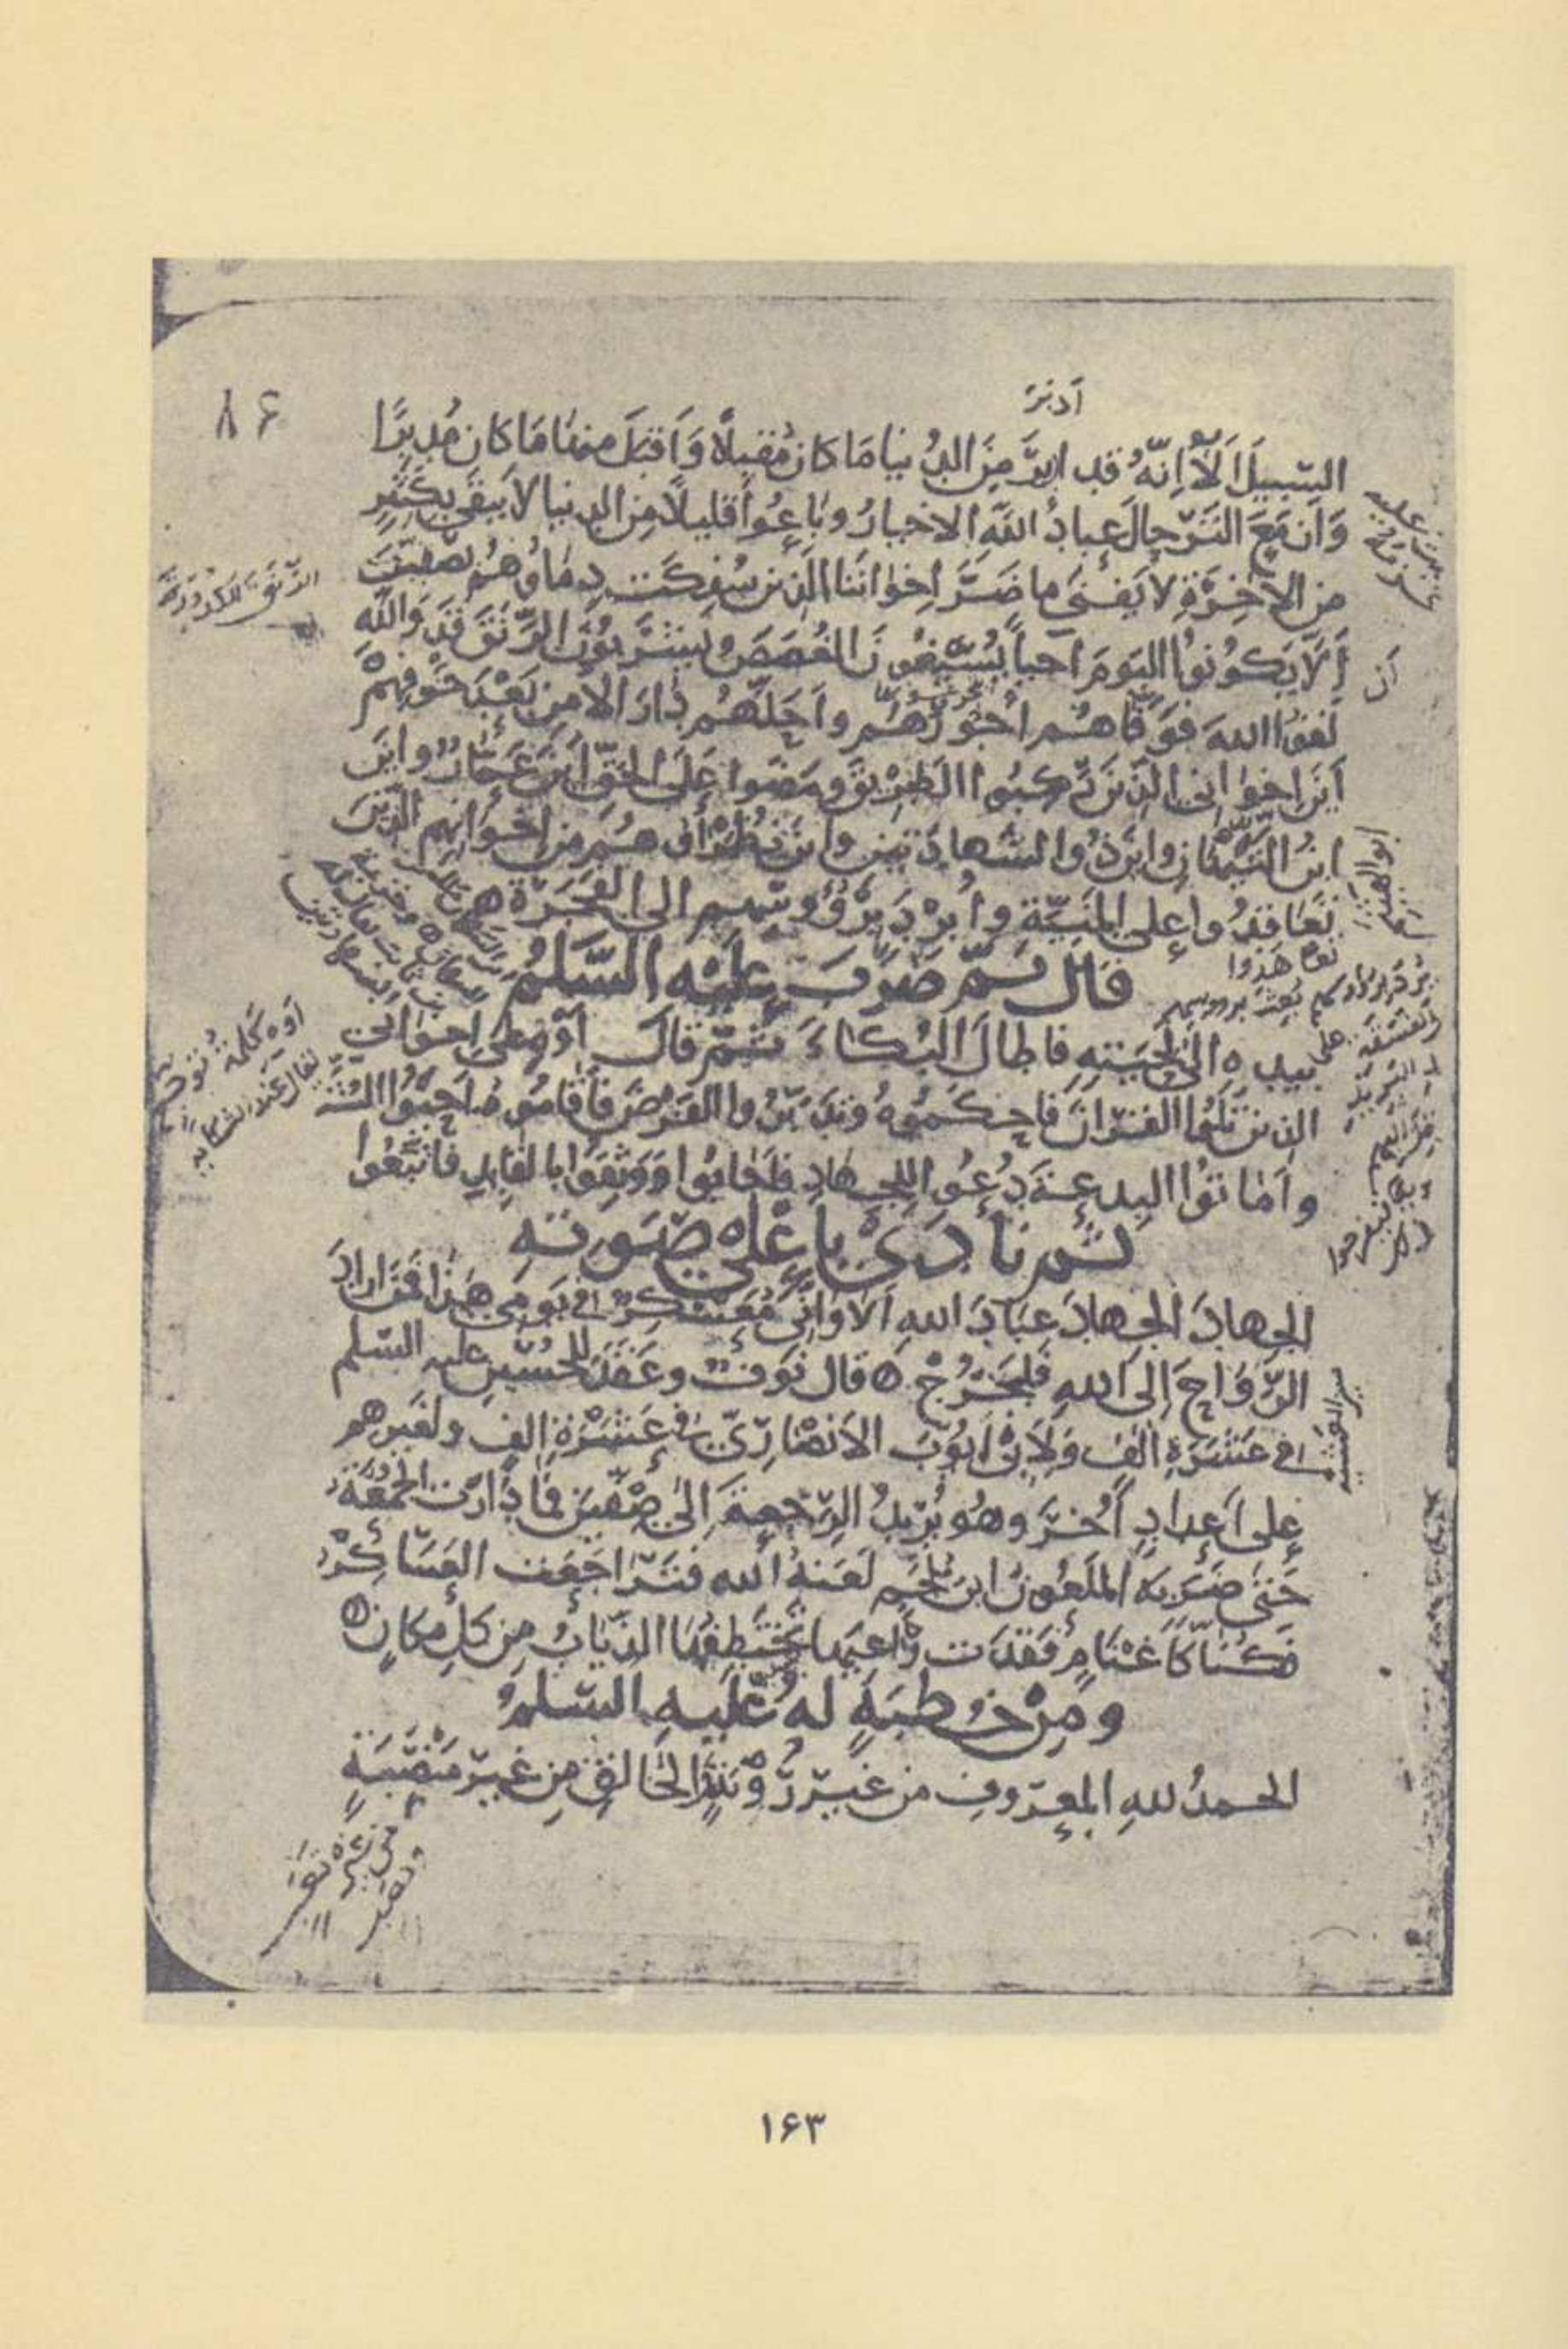 ۸۶
أدبَرَ
السّبيلَ اَلاَ اِنّهُ قد ادبرَ مِنَ الدُنيا مَا كانَ مُقبِلًا وَاَقبَلَ منها مَا كان مُدبِرًا
وَاَزمَعَ التَرّحالَ عِبادُ اللهِ الاخيارُ وبَاعوُا قليلًا مِن الدنيا لا يبقى بِكثيرٍ
من الآخِرَةِ لا يَفنى ما ضَرَّ اِخوانَنا الّذين سُفِكَت دِماؤهُم بصفّينَ
اَلاّ يَكوُنوُا اليَومَ اَحياءً يُسيغُونَ الغُصَصَ ويَشرَبوُنَ الرَّنَقَ قَد وَاللهِ
لَقوُا اللهَ فوَفّاهُم اُجُورَهُم واَحَلّهُم دارَ الاَمنِ بَعدَ خَوفِهِم
اَينَ اِخوانى الّذينَ رَكِبُوا الطريقَ ومَضَوا عَلَى الحَقّ اَينَ عَمّارٌ واَينَ
ابنُ التَيّهَانِ واَينَ ذُو الشّهادَتَينِ واَينَ نُظَراؤهُم مِن اِخوَانِهِم الّذينَ
تَعاقَدُوا على المَنِيّةِ واُبرِدَ برُؤوسِهِم الى الفَجَرَةِ
قال ثمّ ضرَبَ عليهِ السَّلمُ
بيدِه الى لِحيَتِهِ فاطالَ البُكاءَ ثمّ قالَ اَوهِ على اِخوانى
الذينَ تَلَوُا القُرانَ فَاحكَموُهُ وتَدَبّرُوا الفَرضَ فَاَقاموُهُ اَحيَوُا السُنّةَ
واَماتوُا البِدعةَ دُعوُا لِلجِهادِ فَاَجابوُا وَوَثِقوُا بِالقايِدِ فَاتّبَعُوا
ثم نَادَى بِاَعلى صَوتهِ
الجِهادَ الجِهادَ عِبَادَ اللهِ اَلا وَانّي مُعَسكِرٌ فى يَومى هذا فمَن ارادَ
الرّواحَ اِلى اللهِ فَليَخرُج ه قال نَوفٌ وعَقَدَ للحُسَينِ عليه السّلم
فى عَشَرَةِ الفٍ وَلِاَبى اَيوُبَ الاَنصارِىّ فى عَشَرَةِ الفٍ ولغيرهم
على اَعدادٍ اُخَرَ وهُو يُريدُ الرّجعةَ اِلى صِفّينَ فَما دارَت الجُمُعَةُ
حَتى ضَرَبَهُ المَلعُونُ ابنُ مُلجَمٍ لَعَنهُ الله فتَراجَعَت العَسَاكِرُ
فكُنّا كَاَغنَامٍ فقَدَت راعيَها تَختَطِفُها الذِيابُ مِن كلِ مكانٍ ه
ومِن خُطبَةٍ لهُ عَليهِ السّلمُ
الحمدُ للهِ المَعروفِ من غيرِ رُؤيَةٍ الخالقِ مِن غيرِ مَنصَبَةٍ
الرّنَق الكدورة
أن
ابو الهيثم
تعاهدوا
اوه كلمة توجع
تقال عند الشكاية
۱۶۳